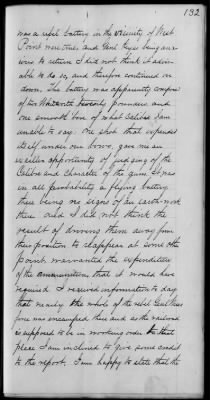 132
was a rebel battery in the vicinity of West
Point mentioned, and Genl Keyes being anx-
ious to return I did not think it advis-
able to do so, and therefore continued on
down. The battery was apparently composed
of two Whitworth twenty pounders and
one smooth bore of what calibre I am
unable to say. One shot that expended
itself under our bows, gave me an
excellent opportunity of judging of the
Calibre and Character of the gun. It was
in all probability a flying battery
there being no signs of an earth work
there and I did not think the
result of driving them away from
their position to reappear at some other
point warranted the expenditure
of the ammunition that it would have
required. I received information to day
that nearly the whole of the rebel Genl
force was encamped there and as the railroad
is supposed to be in working order to that
place I am inclined to give some credit
to the report. I am happy to state that the